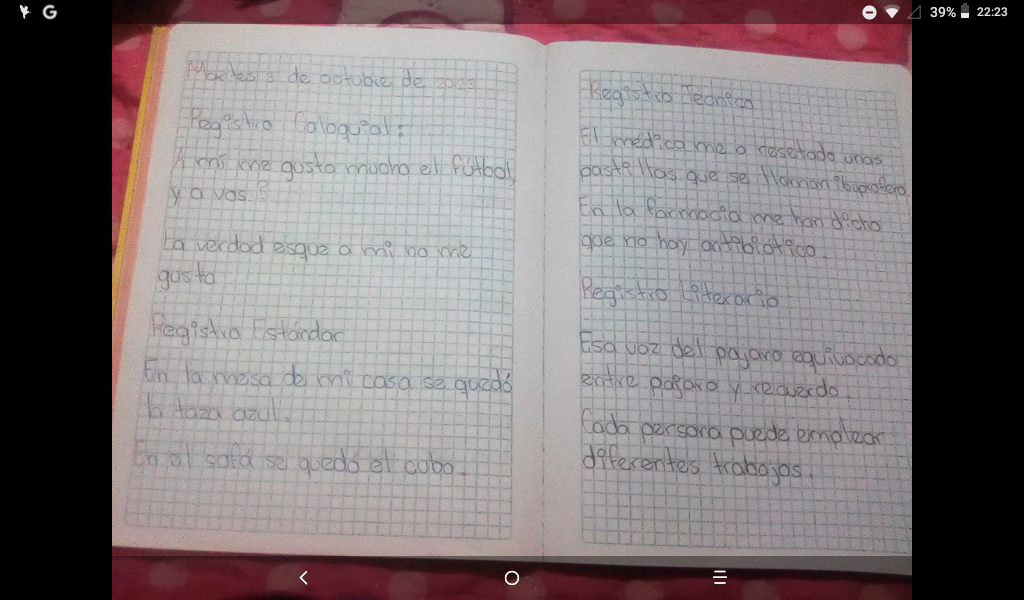 39% 22:23
Martes 3 de octubre de 2023
Registro Coloquial:
A mí me gusta mucho el fútbol,
y a vos?
La verdad esque a mi no me
gusta
Registro Estándar
En la mesa de mi casa se quedó
la taza azul.
En el sofá se quedó el cubo.
Registro Tecnico
El medico me a resetado unas
pastillas que se llaman ibuprofeno
En la farmacia me han dicho
que no hay antibiótico.
Registro Literario
Esa voz del pajaro equivocado
entre pajaro y recuerdo.
Cada persona puede emplear
diferentes trabajos.